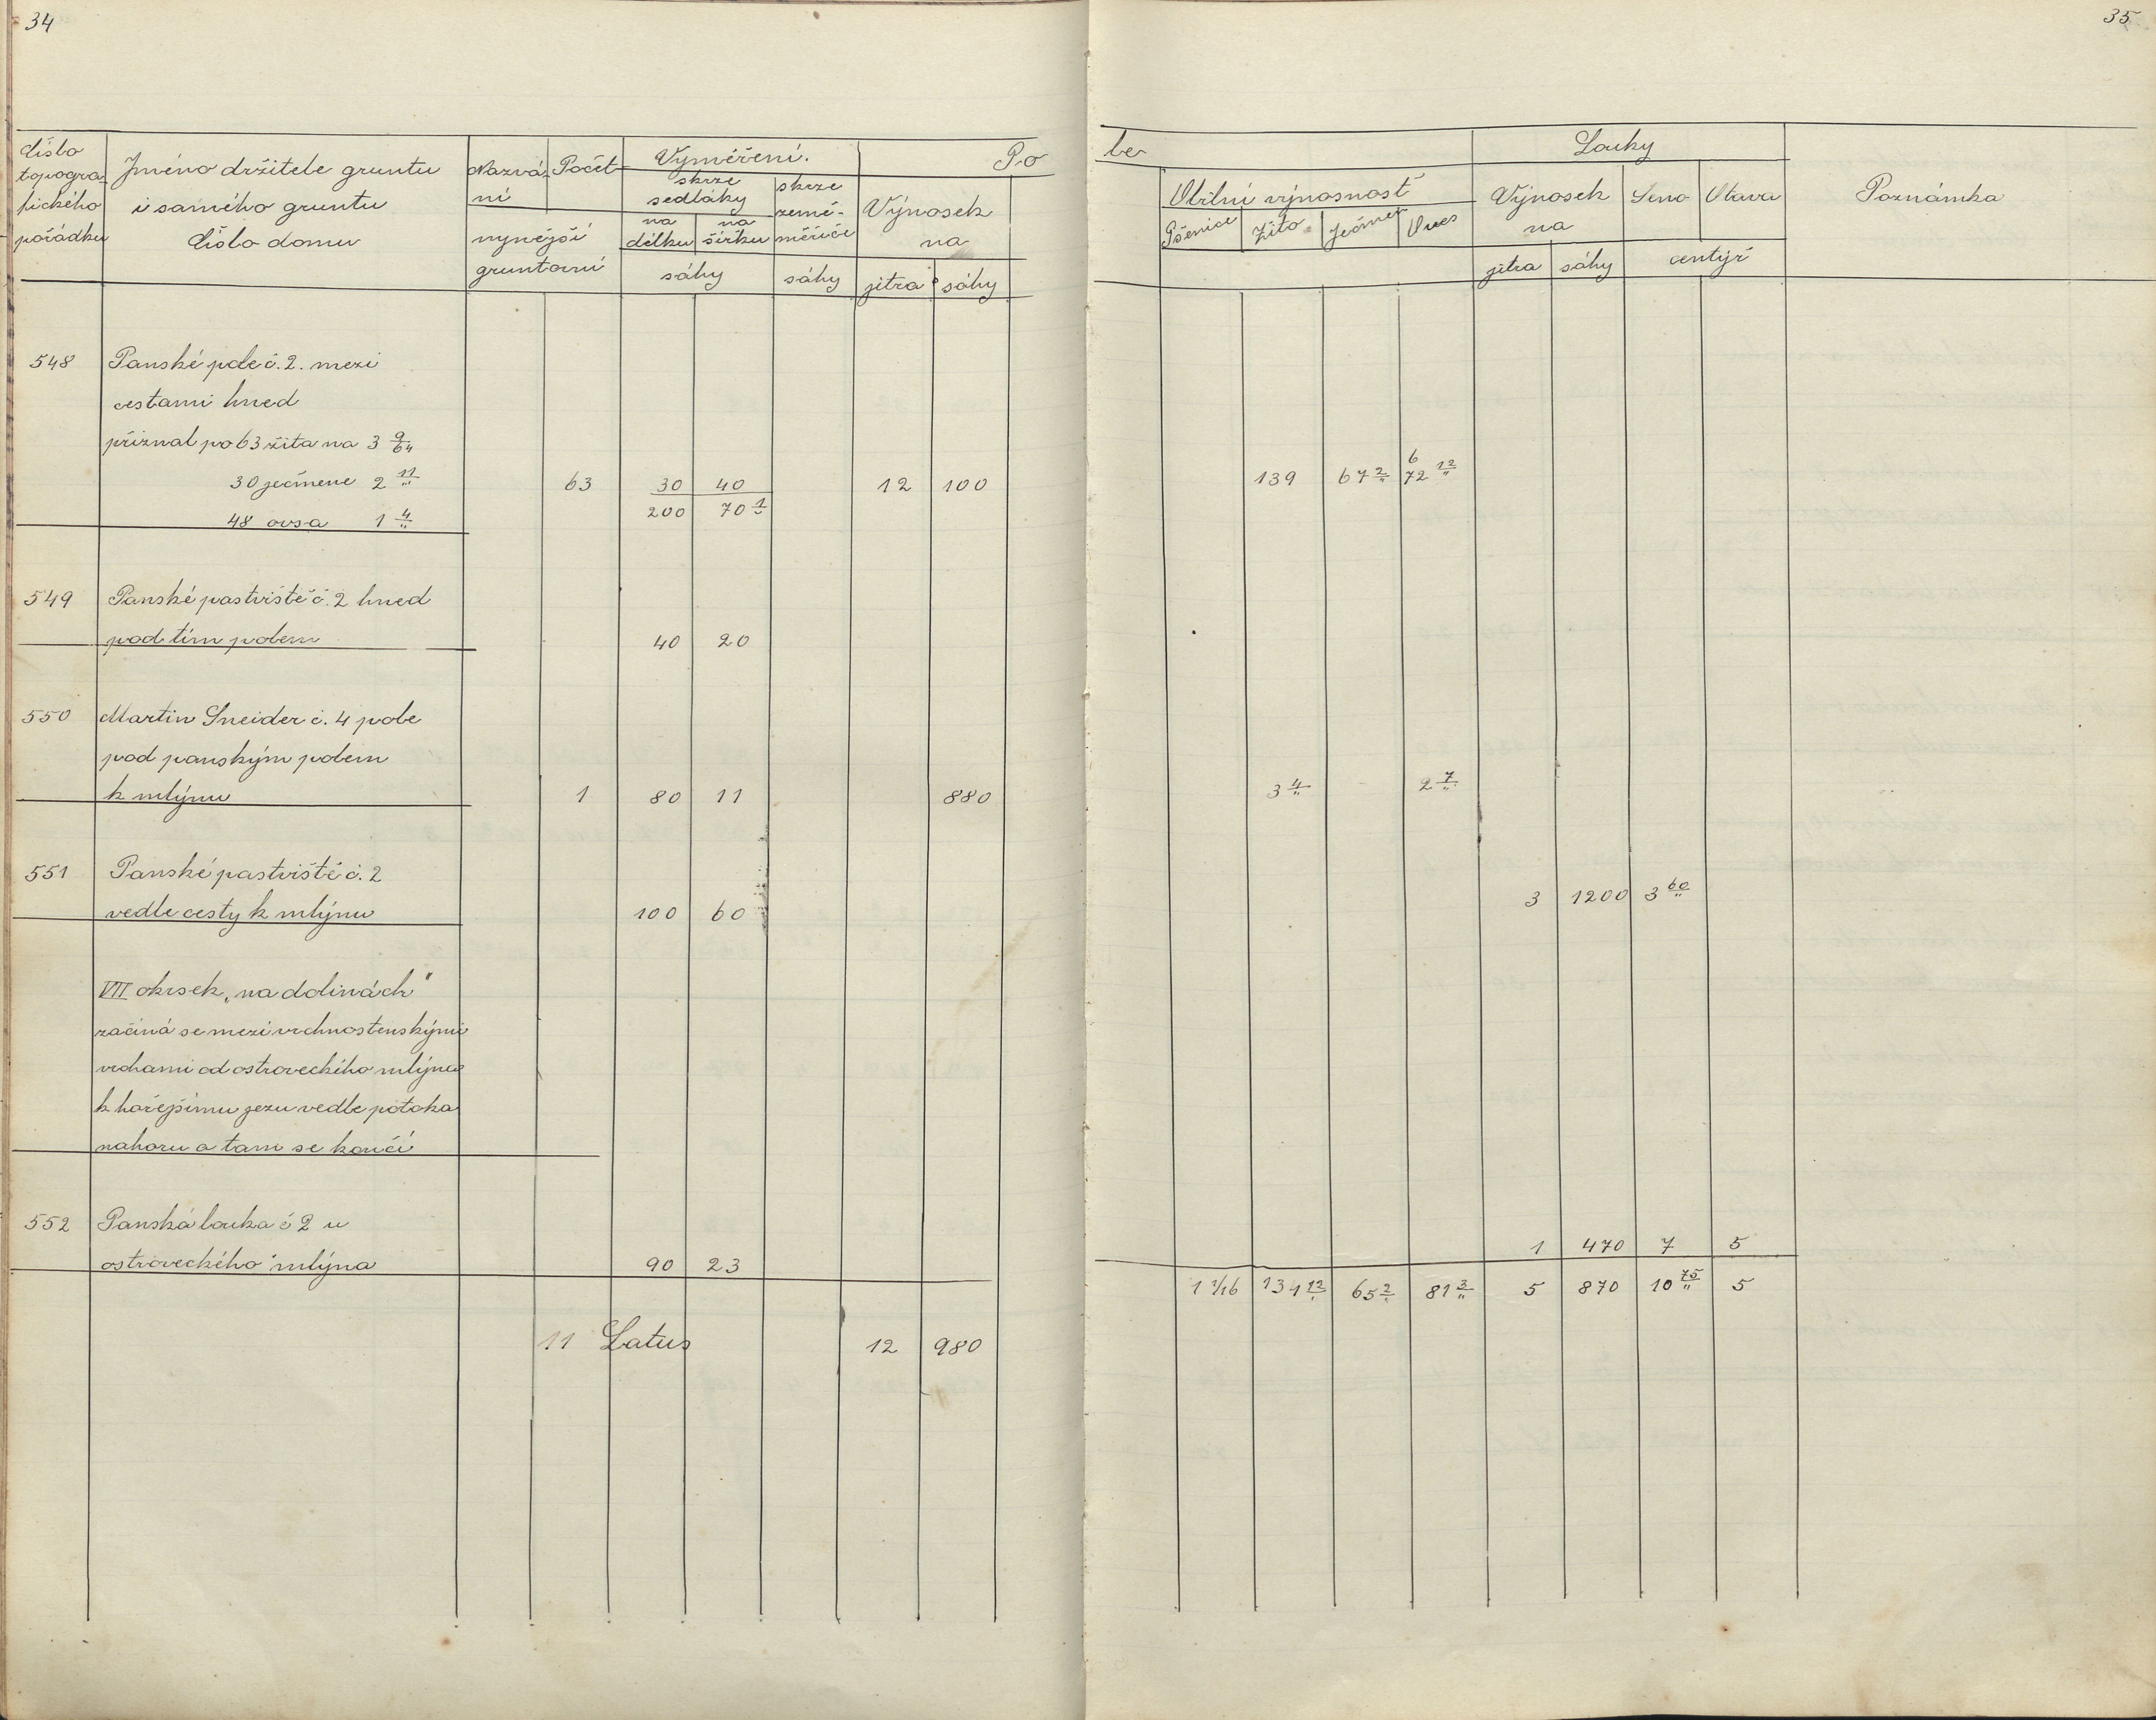 34
35
Číslo topogra- fického pořádku | Jméno držitele gruntu i samého gruntu Číslo domu | Nazvá- ní | Počet | nynější gruntovní | Vyměření. | skrze sedláky | na délku | na šířku | sáhy | skrze země- měřiče | sáhy | Po | Výnosek na | jitra | sáhy
le | Obilní výnosnost | Pšenice | Žito | Ječmen | Oves | Louky | Výnosek na | jitra | sáhy | Seno | Otava | centýř | Poznámka
548 Panské pole č. 2. mezi
cestami hned
přiznal po 63 žita na 3 9/64
30 ječmene 2 11/" 63 30 40 12 100 139 67 2/" 6 72 12/"
48 ovsa 1 4/" 200 70 1/"
549 Panské pastviště č. 2 hned
pod tím polem 40 20
550 Martin Šneider č. 4 pole
pod panským polem
k mlýnu 1 80 11 880 3 4/" 2 7/"
551 Panské pastviště č. 2
vedle cesty k mlýnu 100 60 3 1200 3 60/"
VII okrsek „na dolinách"
začíná se mezi vrchnostenskými
vrchami od ostroveckého mlýna
k hořejšímu jezu vedle potoka
nahoru a tam se končí
552 Panská louka č 2 u
ostroveckého mlýna 90 23 1 470 7 5
1 1/16 134 12/" 65 2/" 81 3/" 5 870 10 75/" 5
11 Latus 12 980